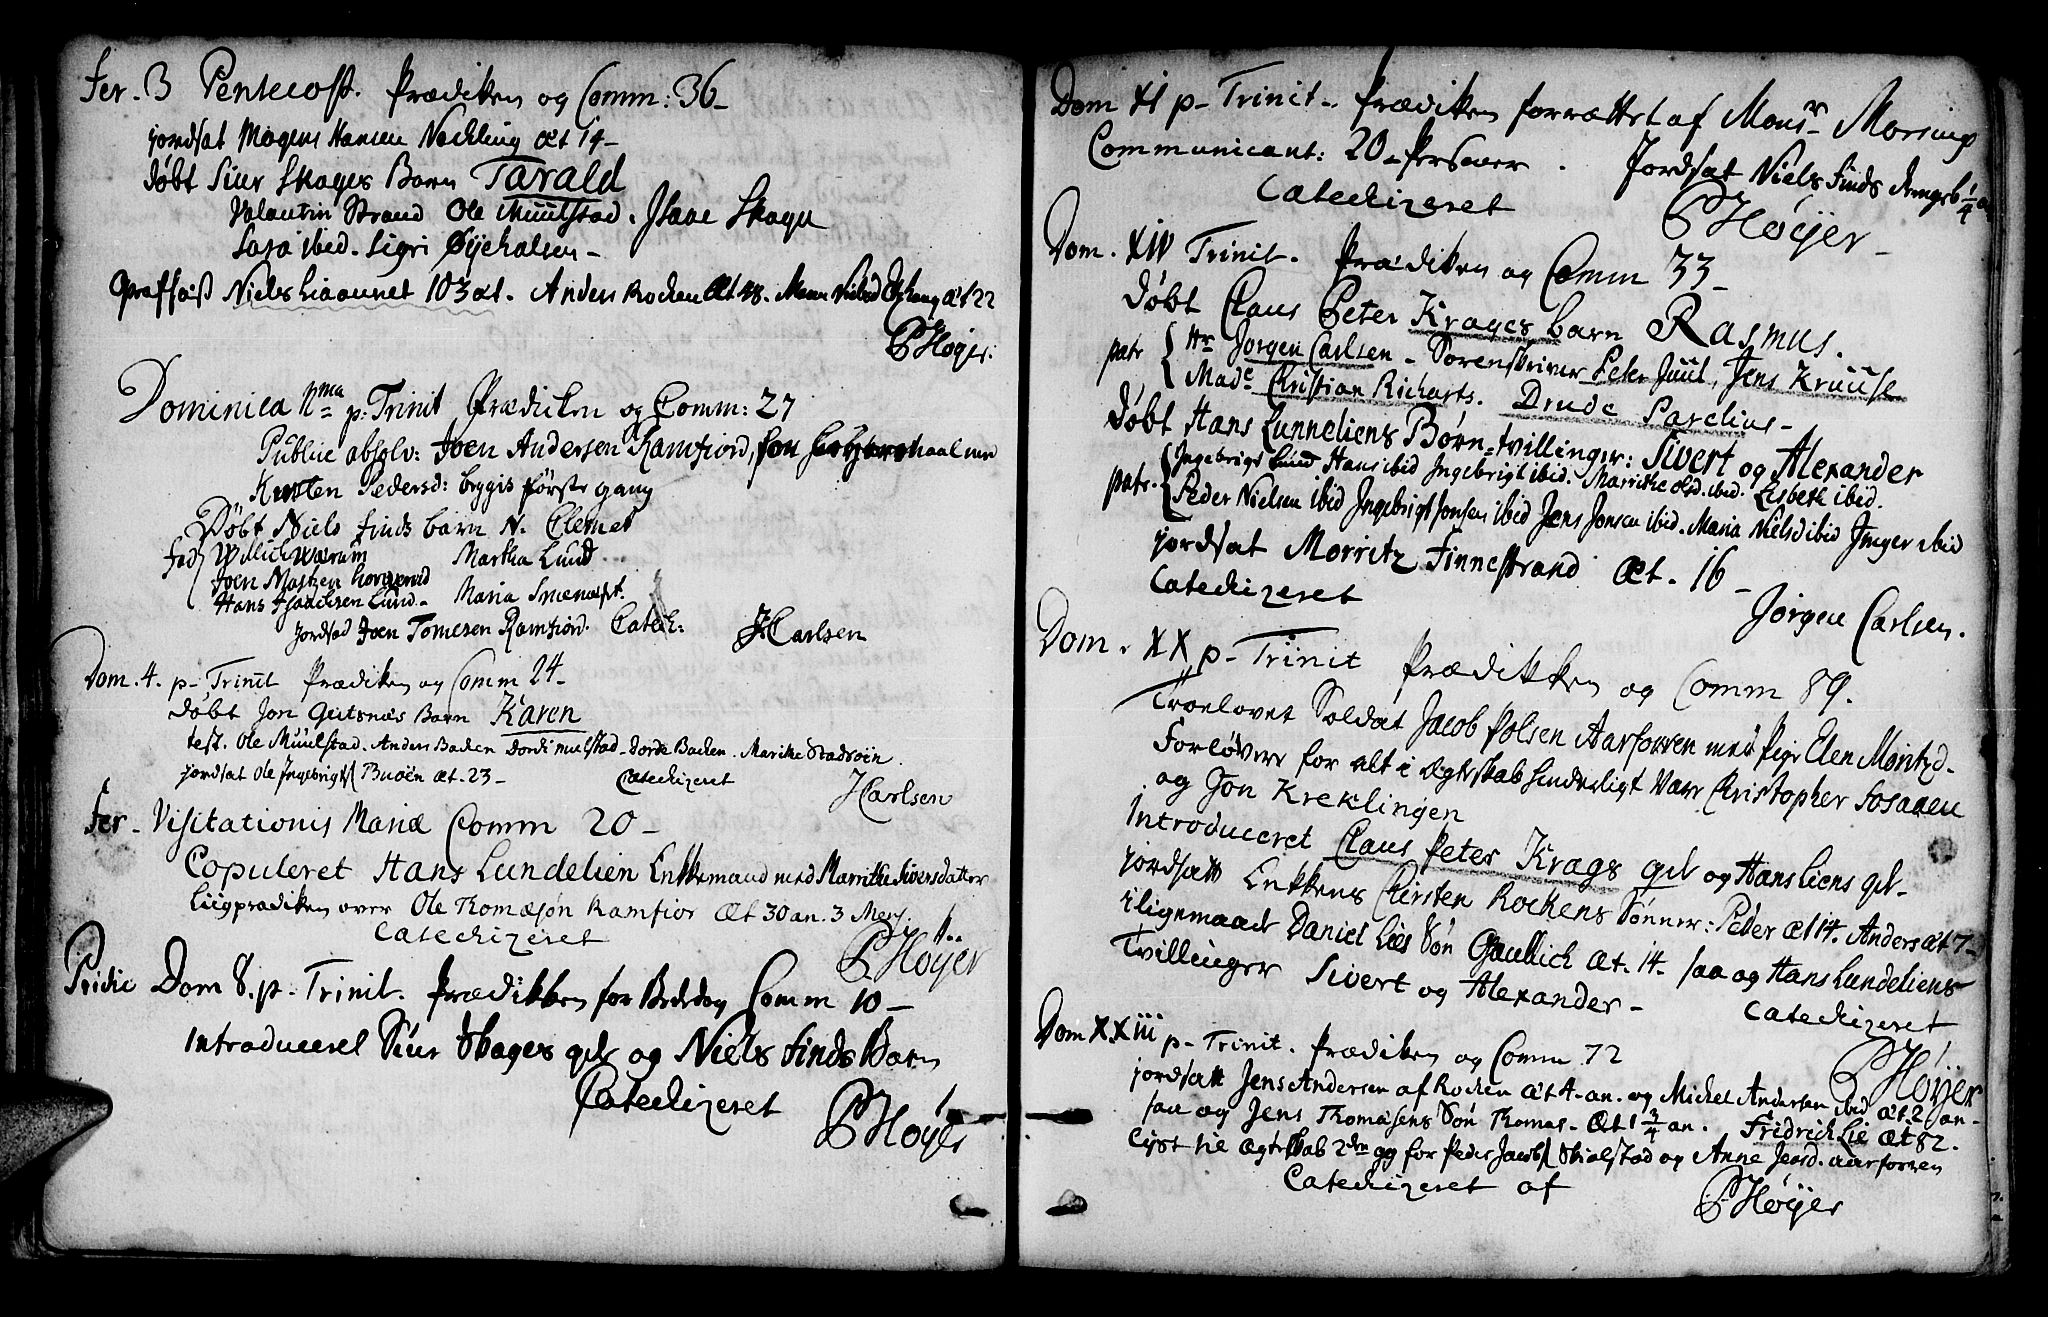 Fer. 3 Pentecost. Prædiken og Comm: 36-
jordsat Mogens Hansen Nockling æt 14-
døbt Siur Skages Barn Tarald
Valentin Strand Ole Muulstad. Isaac Skagen
Sara ibid. Sigri Øyehalsen-
Graffæst Niels Liaannet 103 æt. Anders Rocken Æt 48. Maren æt 22
PHøyer.
Dominica p: Trinit Prædiken og Comm: 27
Public absolv: Joen Andersen Ramfiord,
Kirsten Pedersd: begges første gang
Døbt Niels Finds barn N. Clemet
Fad Willich Wærum Martha Lund
Joen Mortzen
Hans Lund- Maria
Jordsad Joen Tomesen Ramfiord. Catech: JCarlsen
Dom. 4. p- Trinit Prædiken og Comm 24-
døbt Jon Geitsnæs Barn Karen
test. Ole Muulstad. Anders Backen Dordi mulstad- Dorde Backen. Marike Stadsøin.
jordsat Ole Ingebrigts Buøen æt. 23- Catechizeret
JCarlsen
Fer- Visitationis Mariæ Comm 20-
Copuleret Hans Lundelien Enkemand med Marrithe Siversdatter
Liigprædiken over Ole Thomæsøn Ramfior æt 30 an. 3 Mens.
Catechizeret
PHøyer
Pridie Dom 8. p- Trinit. Prædikken for Bededag Comm 10-
Introduceret Siur Skages qel og Niels Finds Barn
Catechizeret
PHøyer
Dom XI p- Trinit- Prædiken forrættet af Monsr Morsing
Communicant: 20- Personer. Jordsat Niels Finds drengeb 1/4
Catechizeret
PHøyer-
Dom. XIV Trinit. Prædiken og Comm 33-
døbt Claus Peter Krages barn Rasmus.
patr Hr Jørgen Carlsen- Sorenskriver Peter Juul, Jens Kruuse
Made Christian Richarts. Drude Parelius-
døbt Hans Lunneliens Børn-tvillinger: Sivert og Alexander
patr. Ingebrigt Lund Hans ibid Ingebrigt ibid. Marrithe Olsd. ibid. Lisbeth ibid.
Peder Nielsen ibid Ingebrigt Jonsen ibid Jens Jonsen ibid. Maria Nielsd ibid Inger ibid
jordsat Morritz Finnestrand Æt. 16-
Catechizeret
Jørgen Carlsen.
Dom. XX p- Trinit Prædikken og Comm 89.
Troelovet Soldat Jacob Polsen Aarforren med Pige Elen Moritzd-
Forløvere for alt i Ægteskab hinderligt var Christopher Fosaaen
og Jon Kreklingen
Introduceret Claus Peter Krags qel og Hans Liens qel-
jordsatt Enkkens Chirsten Rockens Sønner: Peder æt 14. Anders æt 7-
iligemaade Daniel Lies Søn Gaullich æt. 14- saa og Hans Lundeliens
Tvillinger Sivert og Alexander-
Catechizeret
PHøyer
Dom XXiii p- Trinit. Prædiken og Comm 72
jordsatt Jens Andersen af Rocken æt 4- an. og Michel Andersen ibid æt. 2 an-
saa og Jens Thomasens Søn Thomas- Æt 1 3/4 an. Fridrich Lie æt 82.
Lyst til Ægteskab 2den gg for Peder Jacobs Skialstad og Anne Jensd. aarforren
Catechizeret af
PHøyer